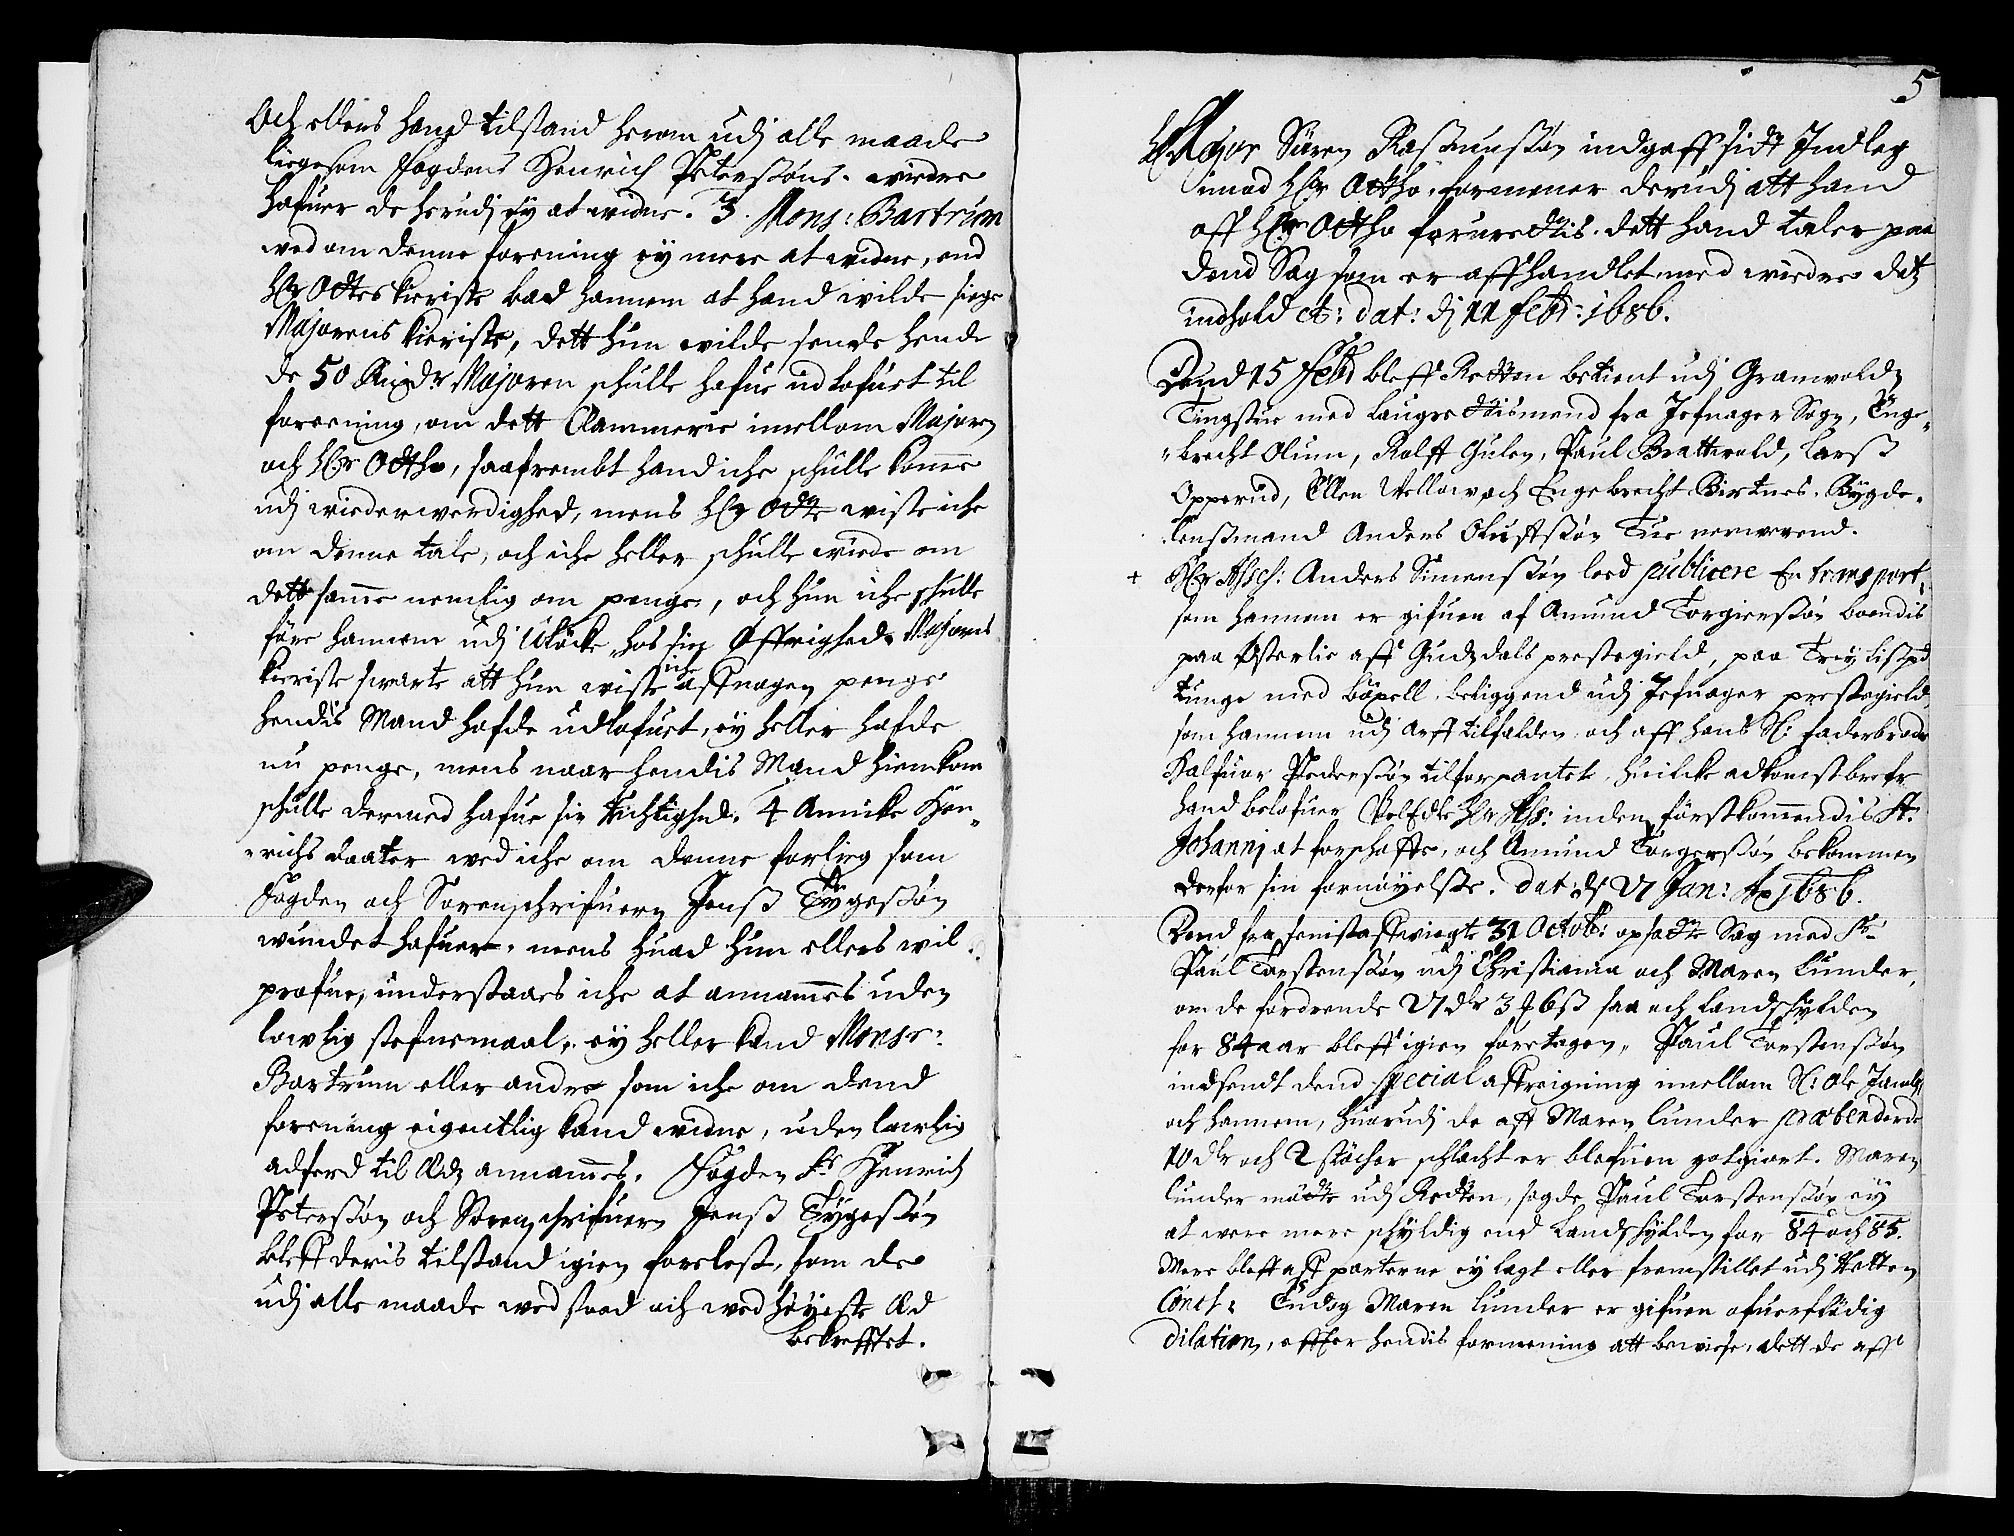 Och ellers hand tilstand herom udj alle maade
liigesom fogdens Henrich Peterssøns. wiedre
hafuer de herudj ey at widne. 3. Mons: Bartrum
wed om denne forening ey mere at widne, end
Hr Ottes kieriste bad hannem at hand wilde siige
Majorens kieriste, dett hun wilde sende hende
de 50 Rixdr Majoren schulle hafue udlofuet til
foreening, om dett Clammerie imellom Majoren
och Hr Ottho, saafrembt hand iche schulle komme
udj wiederwerdighed, mens Hr Otte wiste iche
om denne tale, och iche heller schulle wiede om
dett samme nemlig om penge, och hun iche schulle
føre hannem udj Uløcke hos sin Øffrighed. Majorens
kieriste swarte att hun wiste iche aff nogen penge
hendis Mand hafde udlofuet, ey heller hafde
nu penge, mens naar hendis Mand hiemkom
schulle dermed hafue sin Richtighed. 4 Annike Hen-
richs daater wed iche om denne forlig som
fogden och Sorenschrifuern Jenss Tygessøn
wundet hafuer, mens huad hun ellers wil
profue, understaaes iche at annammes uden
lowlig stefnemaal, ey heller kand Monsr:
Bartrum eller andre som iche om dend
forening eigentlig kand widne, uden lowlig
adferd til Æd annammes. Fogden Sr Henrich
Peterssøn och Sorenschrifuern Jenss Tygessøn
bleff deris tilstand igien forelest, som de
udj alle maade wed stoed och wed høyeste Æd
bekrefftet.
5
Major Søren Rassmussøn indgaff sidt Indleg
imod Hr Ottho, formener derudj att hand
aff Hr Ottho forurettis. dett hand taler paa
dend Sag som er affhandlet med wiedre dets
indhold etc: dat: dj 11 febr: 1686.
Dend 15 Febr bleff Retten betient udj Grannwolds
Tingstue med Laugrettismend fra Jefnager Sogn, Enge-
brecht Olum, Rolff Gulen, Paul Brattwold, Larss
Opperud, Ellen Wellow och Engebrecht Birtnes. Bygde-
lenssmand Anders Olufssøn Tue nerwerend.
+ Hr Assess: Anders Simenssøn loed publicere En transport,
som hannem er gifuen af Amund Torgierssøn boendis
paa Østerlie aff Gudzdals prestegield, paa Trey lispd
tunge med bøxell, beliggend udj Jefnager prestegield,
som hannem udj arff tilfalden, och aff hans Sl: faderbroder
Halfuor Pederssøn tilforpantet, huilcke adkomstbrefue
hand belofuer VelEdle Hr Ass: inden førstkommendis St.
Johannj at forschaffe, och Amund Torgierssøn bekommen
derfor sin fornøyelse. dat: dj 27 Jan: Ao 1686.
Dend fra senist affwigte 31 Octob: opsatte Sag med Sr
Paul Torstenssøn udj Christiania och Maren Lunder,
om de fordrende 27 dr 3 # 6 ss saa och Landschylden
for 84 aar bleff igien foretagen, Paul Torstenssøn
indsendt dend special affreigning imellom Sl: Ole Jacobs
och hannem, huorudj de aff Maren Lunder prætenderde
10 dr och 2 støcher schlacht er blefuen gotgiort. Maren
Lunder møtte udj Retten, sagde Paul Torstenssøn ey
at were mere schyldig end Landschylden for 84 och 85.
Mere bleff aff parterne ey lagt eller fremstillet udj Retten
Concl: Endog Maren Lunder er gifuen ofuerflødig
dilation, effter hendis formening att bewisse, dett de aff